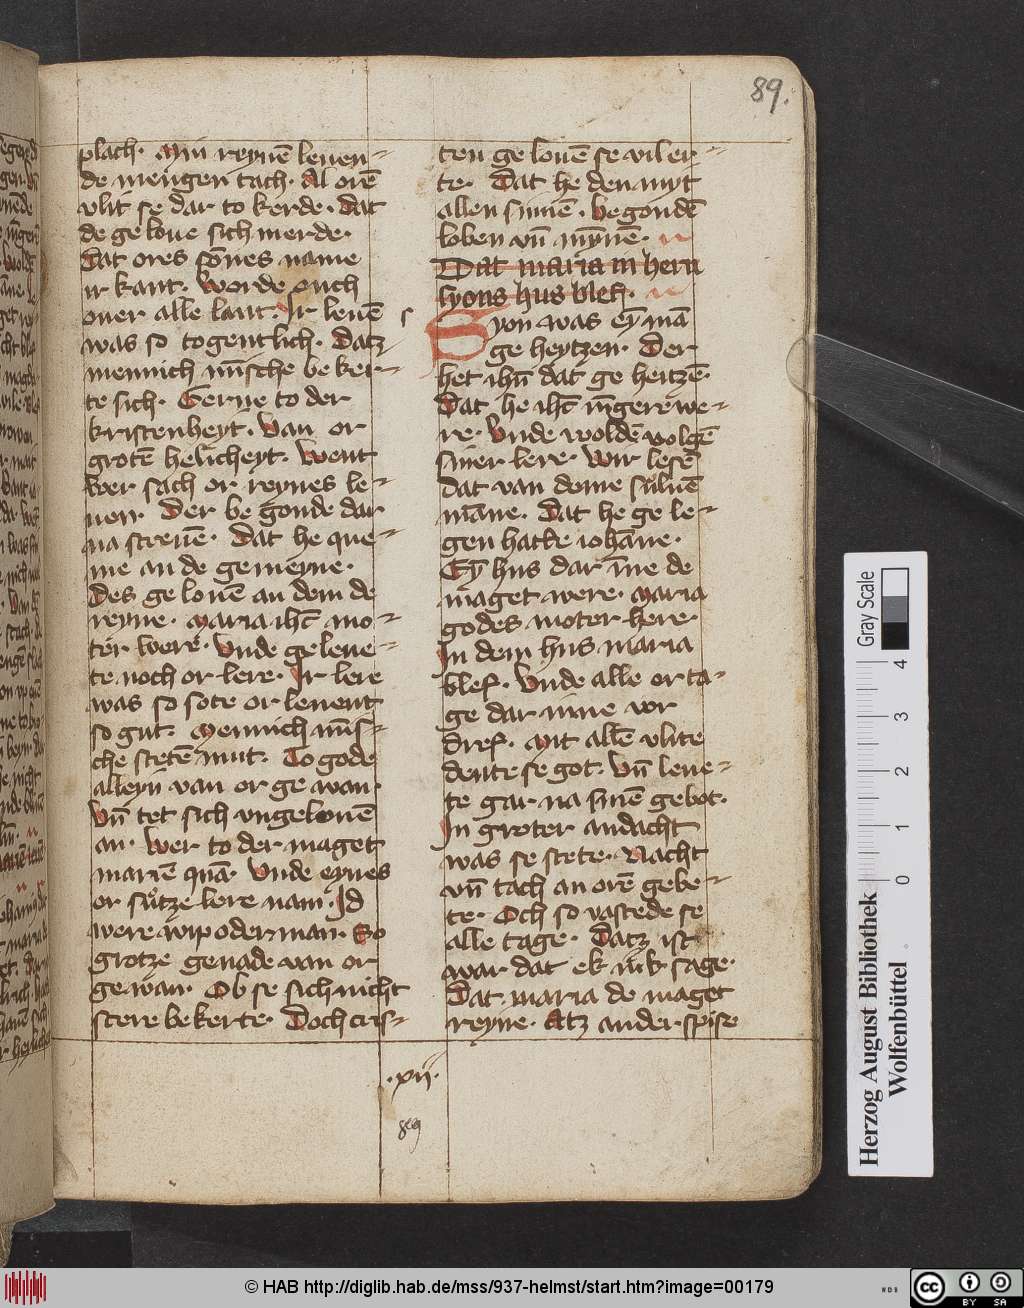 89.
plach. Min reynē leuen-
de mengen tach. Al orē
vlit se dar to kerde. Dat
de geloue sich merde.
Dat ores sōnes name
ir kant. Worde ouch
ouer alle lant. Ir leuē
was so togentlich. Datz
mennich mīsche be ker-
te sich. Gerne to der
kristenheyt. Van or
grotē helicheyt. Went
wer sach or reynes le-
uen. Der be gonde dar
na streuē. Dat he que-
me an de gemeyne.
Des ge louē an dem de
reyne. Maria ihc mo-
ter were. Vnde geleue-
te noch or lere. Ir lere
was so sote or leuent
so gut. Mennich mīs-
che stetē mut. To gode
alleyn van or ge wan.
Vn̄ tet sich vngelouē
an. Wer to der maget
mariē quā. Vnde eynes
or sůtze lere nam. Id
were wip oder man. So
grotze genade van or
ge wan. Ob se sich nicht
stere bekerte. Doch cris-
ten ge louē se vil er-
te. Dat he den myt
allen sinnē. be gondē
loben vn̄ mȳnē.
Dat maria in hern
syons hus bleſ.
Syon was eȳ mā
ge heytzen. Der
het ihn̄ dat ge heitzē.
Dat he ihc īngere we-
re. Vnde woldē volgē
siner lere. Wir lesē
dat van deme sůluē
māne. Dat he ge le-
gen hatte iohāne.
Eȳ hus dar īne de
maget were. Maria
godes moter here.
In dem hus maria
bleſ. Vnde alle or ta-
ge dar inne vor
dreſ. Mit allē vlite
dente se got. Vn̄ leue-
te gar na sinē gebot.
In groter andacht
was se stete. Nacht
vn̄ tach an orē gebe-
te. Och so vastede se
alle tage. Datz ist
war dat ek ůk sage.
Dat maria de maget
reyne. Atz ander spise
.xii.
Herzog August Bibliothek
Wolfenbüttel
Gray Scale
0 1 2 3 4
© HAB http://diglib.hab.de/mss/937-helmst/start.htm?image=00179
WDB
cc BY SA